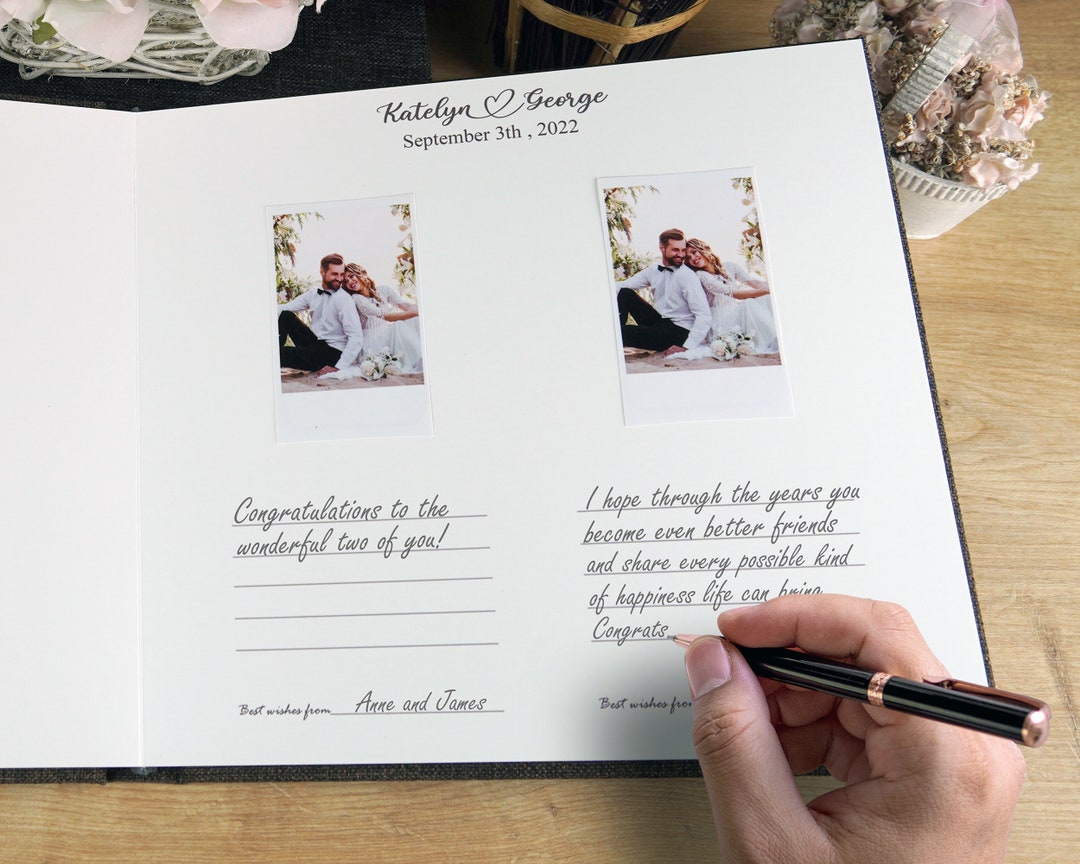 Katelyn George
September 3th , 2022
Congratulations to the
wonderful two of you!
Best wishes from Anne and James
I hope through the years you
become even better friends
and share every possible kind
of happiness life can bring
Congrats
Best wishes from